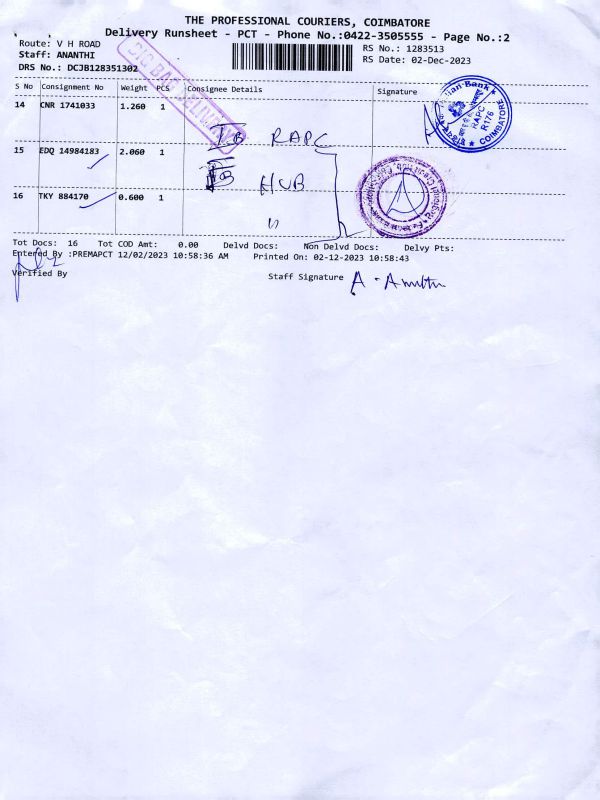 THE PROFESSIONAL COURIERS, COIMBATORE
Delivery Runsheet - PCT - Phone No.:0422-3505555 - Page No.:2
Route: V H ROAD
Staff: ANANTHI
DRS No.: DCJB128351302
RS No.: 1283513
RS Date: 02-Dec-2023
S No Consignment No Weight PCS Consignee Details Signature
14 CNR 1741033 1.260 1
IB RAPC
RAPC
R176
COIMBATORE
15 EDQ 14984183 2.060 1
IB HUB
16 TKY 884170 0.600 1
"
Tot Docs: 16 Tot COD Amt: 0.00 Delvd Docs: Non Delvd Docs: Delvy Pts:
Entered By :PREMAPCT 12/02/2023 10:58:36 AM Printed On: 02-12-2023 10:58:43
Verified By
Staff Signature